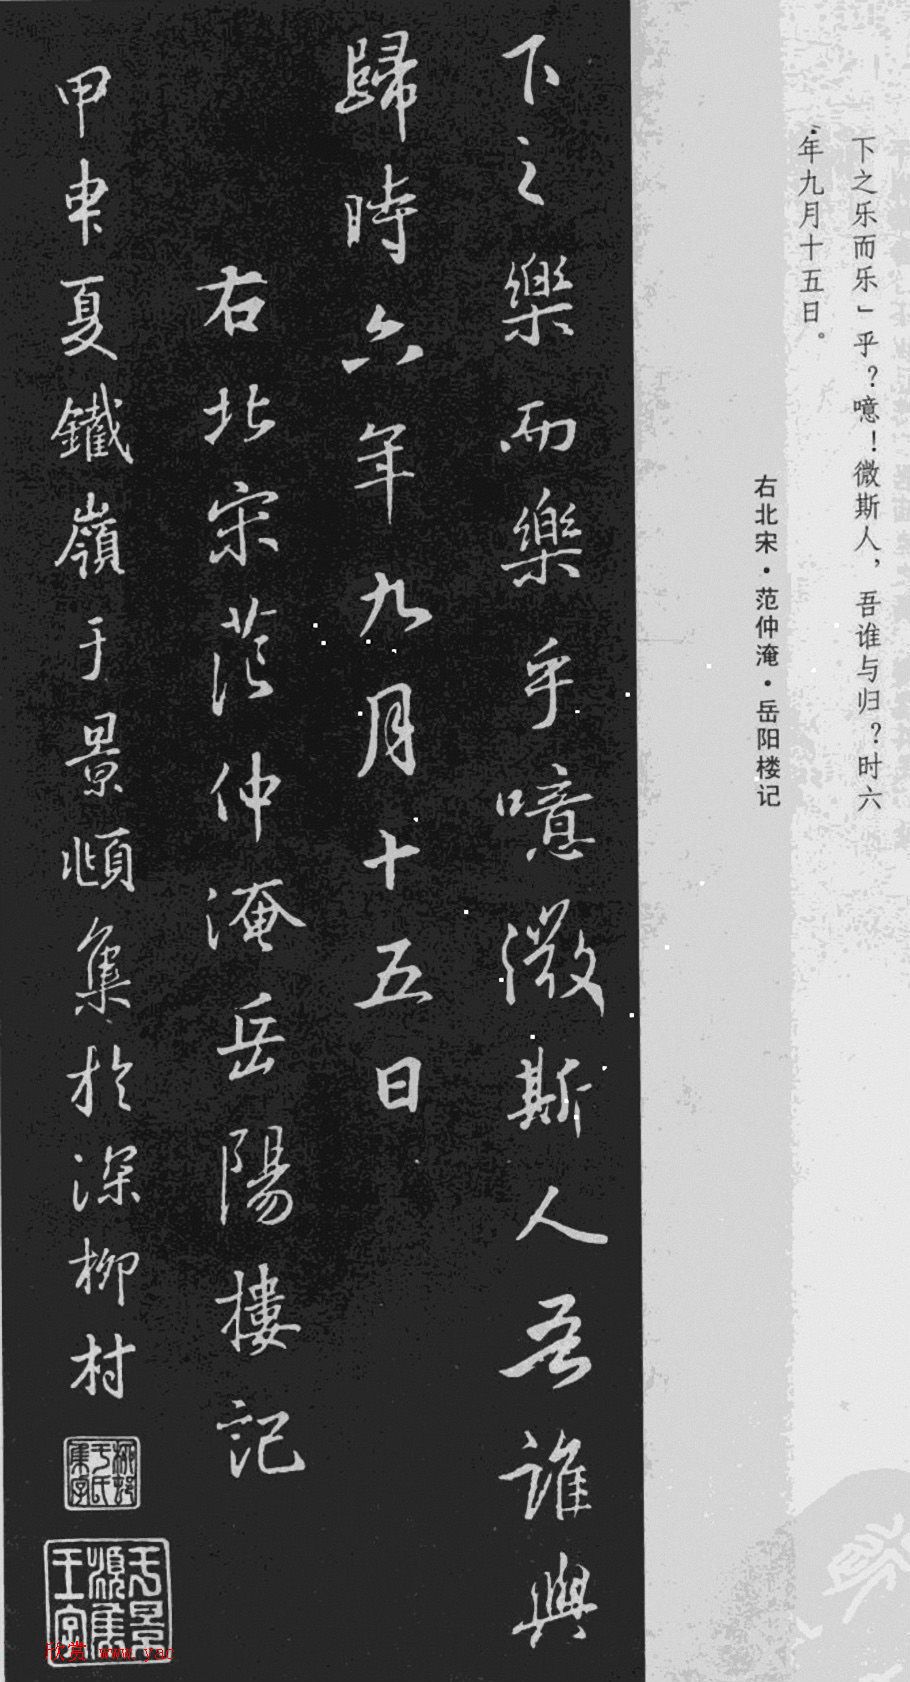 下之乐而乐」乎？噫！微斯人，吾谁与归？时六
年九月十五日。
右北宋·范仲淹·岳阳楼记
下之樂而樂乎噫微斯人吾誰與
歸時六年九月十五日
右北宋范仲淹岳陽樓記
甲申夏鐵嶺于景頫集於深柳村
柳邨于氏集字
于景頫集王字
欣赏 www.yac